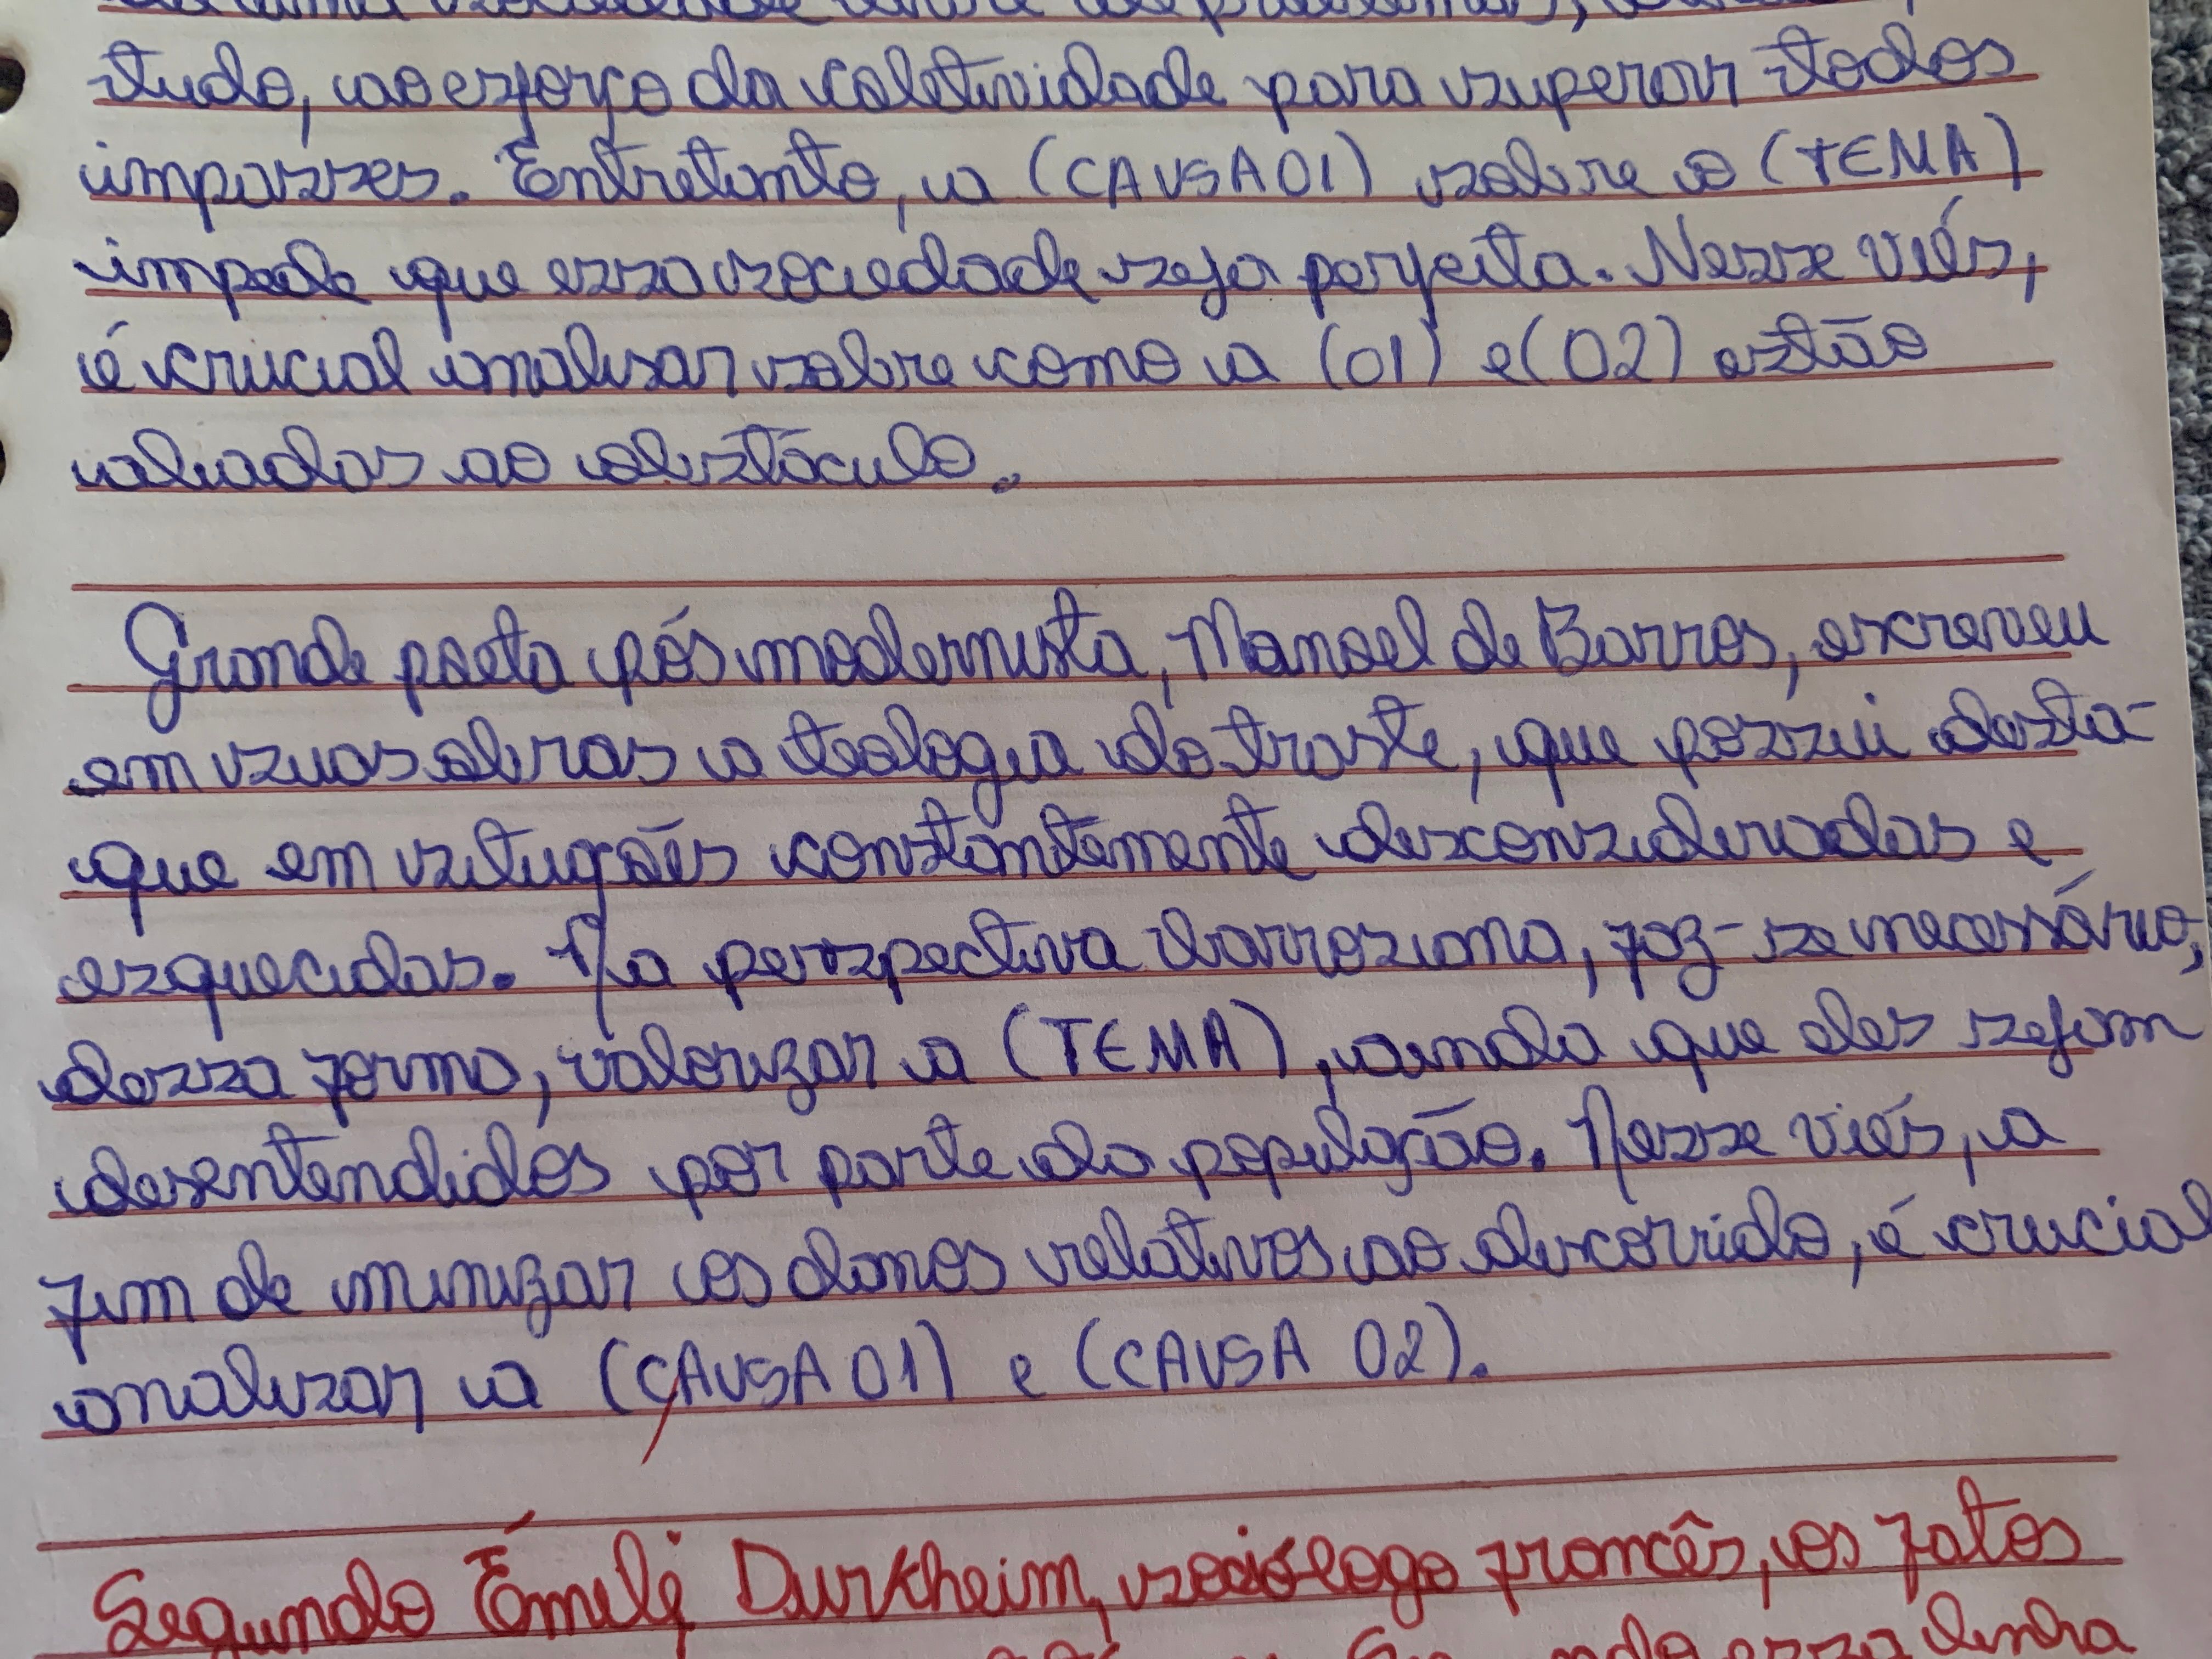 tudo, ao esforço da coletividade para superar todos
impasses. Entretanto, a (CAUSA 01) sobre o (TEMA)
impede que essa sociedade seja perfeita. Nesse viés,
é crucial analisar sobre como a (01) e (02) estão
aliadas ao obstáculo.
Grande poeta pós modernista, Manoel de Barros, escreveu
em suas obras a teologia do traste, que possui desta-
que em situações constantemente desconsideradas e
esquecidas. Na perspectiva barrosiana, faz-se necessário,
dessa forma, valorizar a (TEMA), ainda que eles sejam
desentendidos por parte da população. Nesse viés, a
fim de minizar os danos relativos ao discorrido, é crucial
analizar a (CAUSA 01) e (CAUSA 02).
Segundo Émile Durkheim, sociólogo francês, os fatos
essa linha